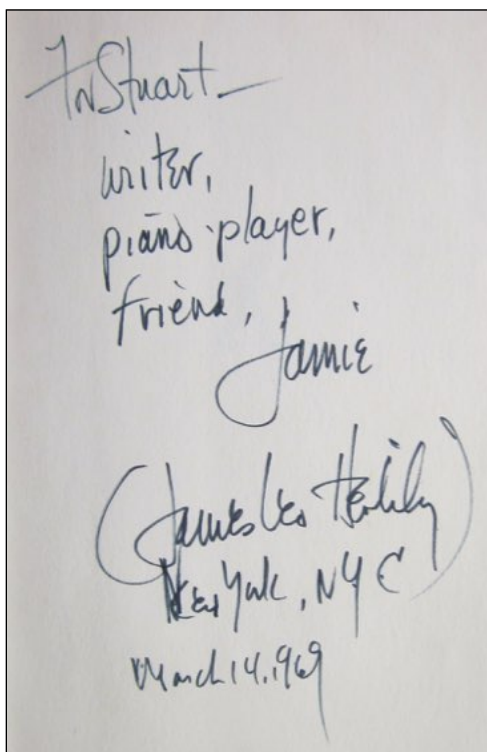 For Stuart —
writer,
piano-player,
friend,
Jamie
(James Leo Herlihy)
New York, NYC
March 14, 1969